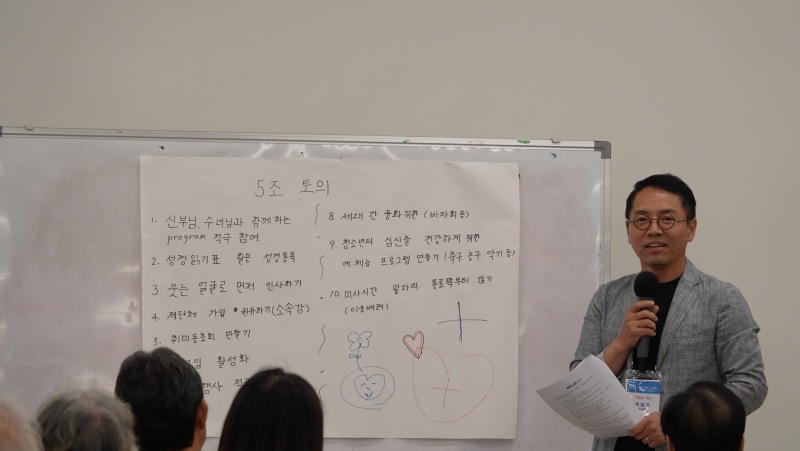 5조 토의
1. 신부님, 수녀님과 함께하는
program 적극 참여.
2. 성경읽기표 활용 성경통독
3. 웃는 얼굴로 먼저 인사하기
4. 제단체 가입 권유하기(소속감)
5. 취미동호회 만들기
활성화
8. 세대 간 융화 위한 (바자회 등)
9. 청소년의 심신을 건강하게 위한
예체능 프로그램 만들기 (축구 농구 악기 등)
10. 미사시간 앞자리 통로쪽부터 앉기
(이웃배려)